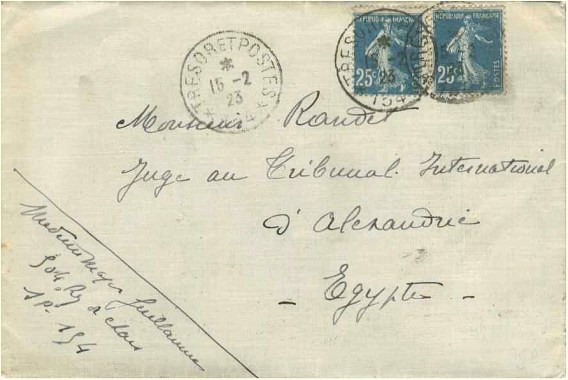 REPUBLIQUE FRANÇAISE
25c
POSTES
REPUBLIQUE FRANÇAISE
25c
POSTES
TRESOR ET POSTES
*
15-2
23
TRESOR
*
15-2
23
154
Monsieur Randet
Juge au Tribunal International
d'Alexandrie
- Egypte -
Guillaume
504 Rg de chars
SP. 154